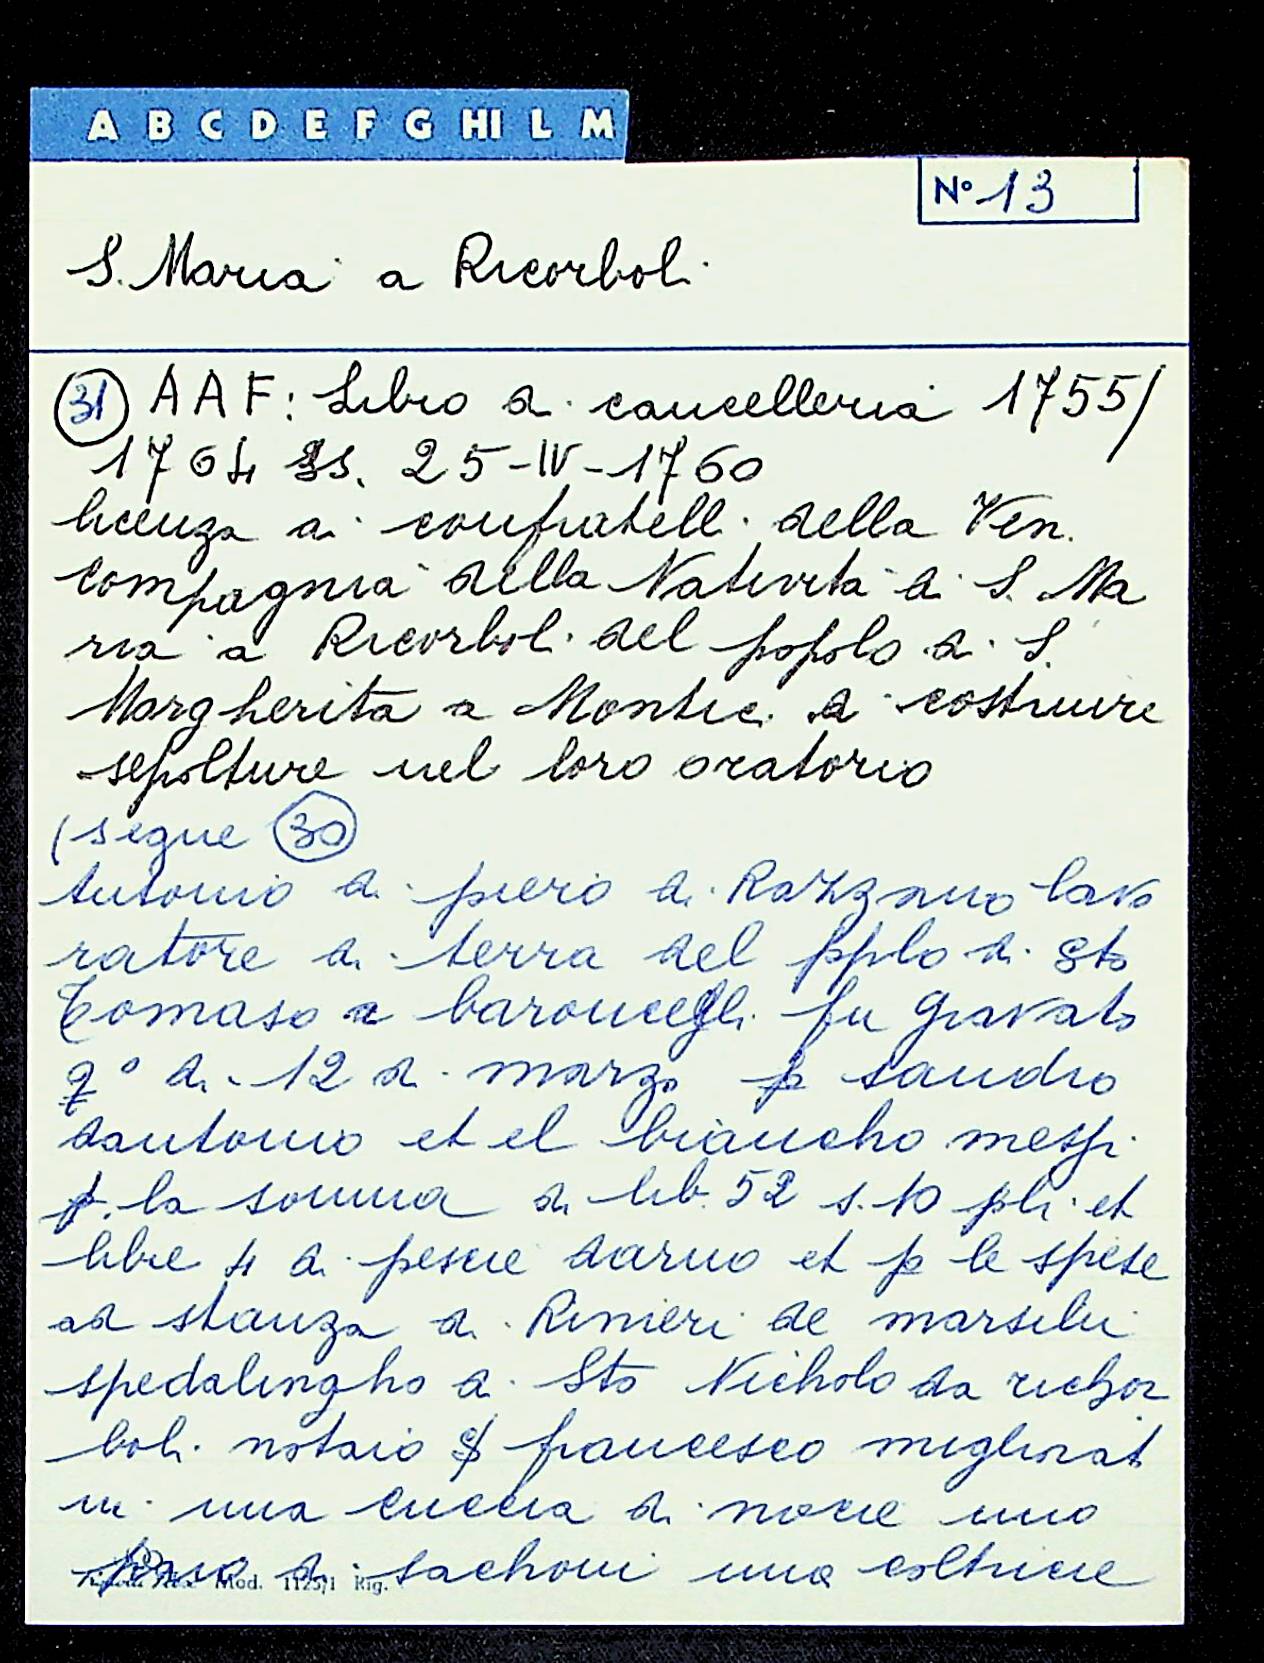 A B C D E F G HI L M
N° 13
S. Maria a Ricorboli
31 AAF: Libro di cancelleria 1755/
1764 ss. 25-IV-1760
licenza ai confratelli della Ven.
Compagnia della Natività di S. Ma
ria a Ricorboli del popolo di S.
Margherita a Montici di costruire
sepolture nel loro oratorio
(segue 30
Antonio di piero di Razzano lavo
ratore di terra del pplo di Sto
Tomaso a baroncegli fu gravato
qº di 12 di marzo p sandro
dantonio et el biancho messi
p. la somma di lib. 52 s. 10 pli et
libre 4 di pescie darno et p le spese
ad stanza di Rinieri de marsilii
spedalingho di Sto Nicholo da richor
boli notaio S francesco migliorat
in una cuccia di nocie uno
di sachoni una coltricie
Mod. 1125/1 Rig.